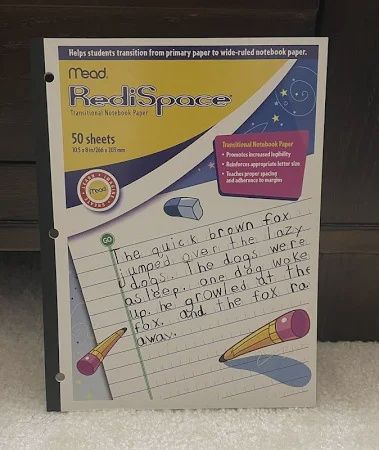 Helps students transition from primary paper to wide-ruled notebook paper.
Mead.
RediSpace
Transitional Notebook Paper
50 sheets
10.5 x 8in/266 x 203 mm
Transitional Notebook Paper
• Promotes increased legibility
• Reinforces appropriate letter size
• Teaches proper spacing
and adherence to margins
Mead
GO
The quick brown fox
jumped over the lazy
dogs. The dogs were
asleep. one dog woke
up. he growled at the
fox. and the fox ra
away.